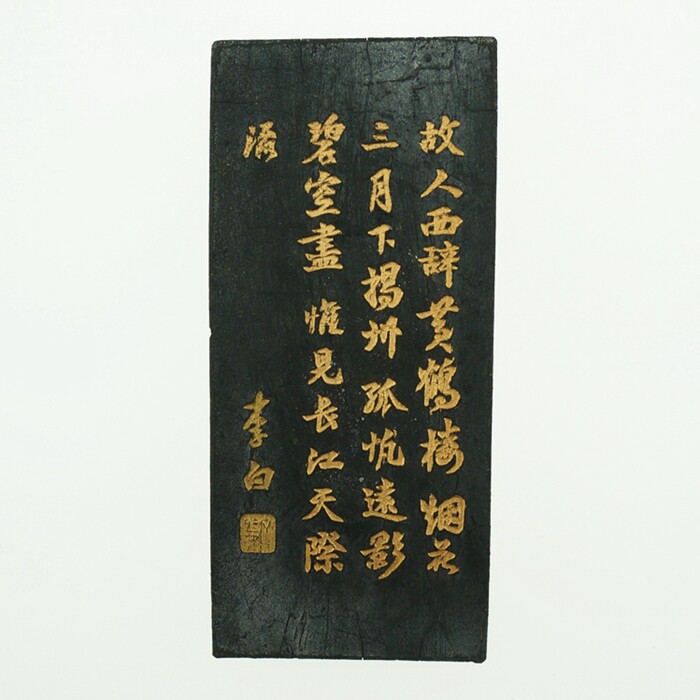 故人西辞黄鹤楼烟花
三月下揚州孤帆遠影
碧空盡惟見长江天際
流
李白